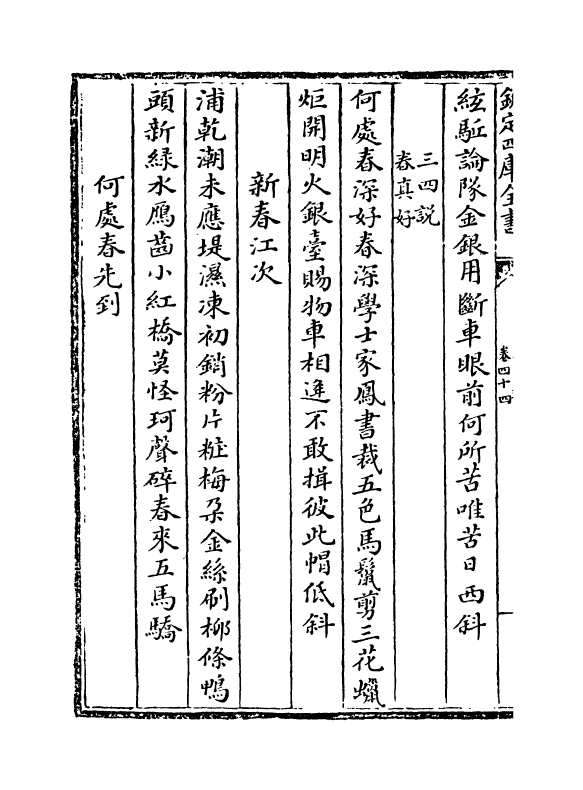 欽定四庫全書
卷四十四
絃駈論隊金銀用斷車眼前何所苦唯苦日西斜
三四説
春真好
何處春深好春深學士家鳳書裁五色馬鬛剪三花蠟
炬開明火銀臺賜物車相逢不敢揖彼此帽低斜
新春江次
浦乾潮未應堤濕凍初銷粉片粧梅朶金絲刷柳條鴨
頭新緑水鴈齒小紅橋莫怪珂聲碎春來五馬驕
何處春先到